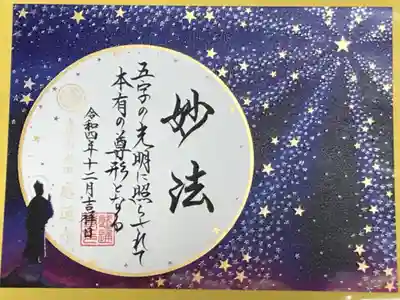 妙法
五字の光明に照らされて
本有の尊形となる
令和四年十二月吉祥日